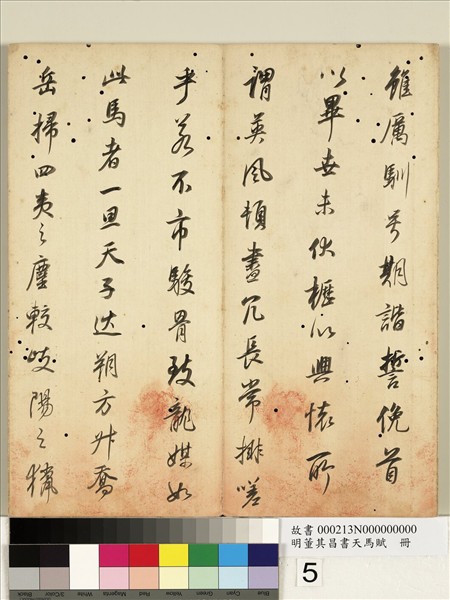 雖厲馴号期諧誓俛首
以畢世未伏櫪以興懷所
謂英風頓盡冗長常排嗟
乎若不市駿骨致龍媒如
此馬者一旦天子巡朔方升喬
岳掃四夷之塵較岐陽之獵
故書 000213N000000000
明董其昌書天馬賦 冊
Black 3/Color White Magenta Red Yellow Green Cyan Blue
5